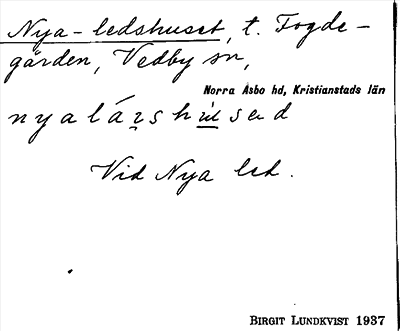 Nya-ledshuset, t. Fogde-
gården, Vedby sn,
Norra Åsbo hd, Kristianstads län
Vid Nya led.
BIRGIT LUNDKVIST 1937